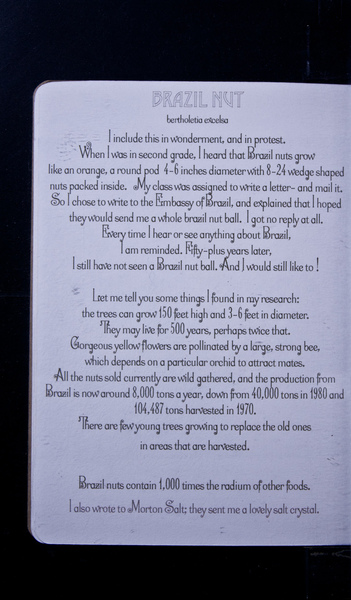 BRAZIL NUT
bertholetia excelsa
I include this in wonderment, and in protest.
When I was in second grade, I heard that Brazil nuts grow
like an orange, a round pod 4-6 inches diameter with 8-24 wedge shaped
nuts packed inside. My class was assigned to write a letter- and mail it.
So I chose to write to the Embassy of Brazil, and explained that I hoped
they would send me a whole brazil nut ball. I got no reply at all.
Every time I hear or see anything about Brazil,
I am reminded. Fifty-plus years later,
I still have not seen a Brazil nut ball. And I would still like to !
Let me tell you some things I found in my research:
the trees can grow 150 feet high and 3-6 feet in diameter.
They may live for 500 years, perhaps twice that.
Gorgeous yellow flowers are pollinated by a large, strong bee,
which depends on a particular orchid to attract mates.
All the nuts sold currently are wild gathered, and the production from
Brazil is now around 8,000 tons a year, down from 40,000 tons in 1980 and
104,487 tons harvested in 1970.
There are few young trees growing to replace the old ones
in areas that are harvested.
Brazil nuts contain 1,000 times the radium of other foods.
I also wrote to Morton Salt; they sent me a lovely salt crystal.